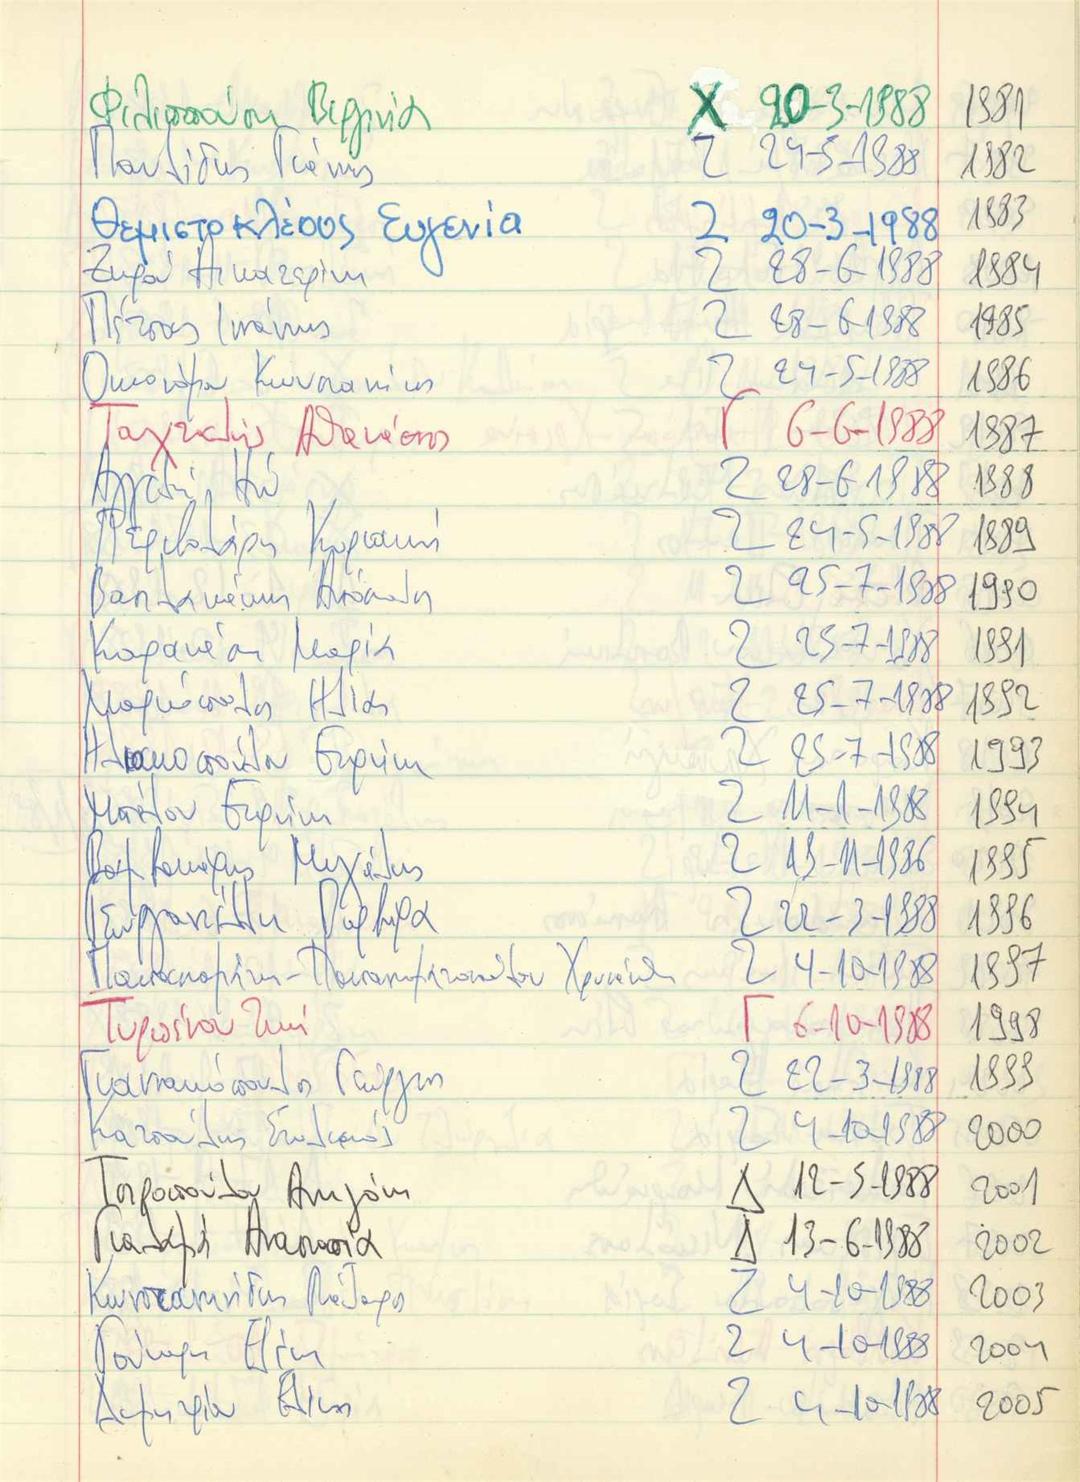 Φιλιππούση Βιργινία Χ 20-3-1988 1981
Παυλίδης Γιάννης Ζ 24-5-1988 1982
Θεμιστοκλέους Ευγενία Ζ 20-3-1988 1983
Ζηρού Αικατερίνη Ζ 28-6-1988 1984
Πέτσας Ιωάννης Ζ 28-6-1988 1985
Οικονόμου Κωνσταντίνος Ζ 24-5-1988 1986
Αθανάσιος Γ 6-6-1988 1987
Αγγελική Ζ 28-6-1988 1988
Περιβολάρη Κυριακή Ζ 24-5-1988 1989
Ζ 25-7-1988 1990
Μαρία Ζ 25-7-1988 1991
Μαρκόπουλος Ηλίας Ζ 25-7-1988 1992
Ηλιακοπούλου Ειρήνη Ζ 25-7-1988 1993
Ειρήνη Ζ 11-1-1988 1994
Βαμβακάρης Μιχάλης Ζ 13-11-1986 1995
Ζ 22-3-1988 1996
Ζ 4-10-1988 1997
Γ 6-10-1988 1998
Γιαννακόπουλος Γεώργιος Ζ 22-3-1988 1999
Κατσούλης Ζ 4-10-1988 2000
Τσιροπούλου Αντιγόνη Δ 12-5-1988 2001
Αναστασία Δ 13-6-1988 2002
Κωνσταντινίδης Ζ 4-10-1988 2003
Γούναρη Ελένη Ζ 4-10-1988 2004
Δημητρίου Ζ 4-10-1988 2005